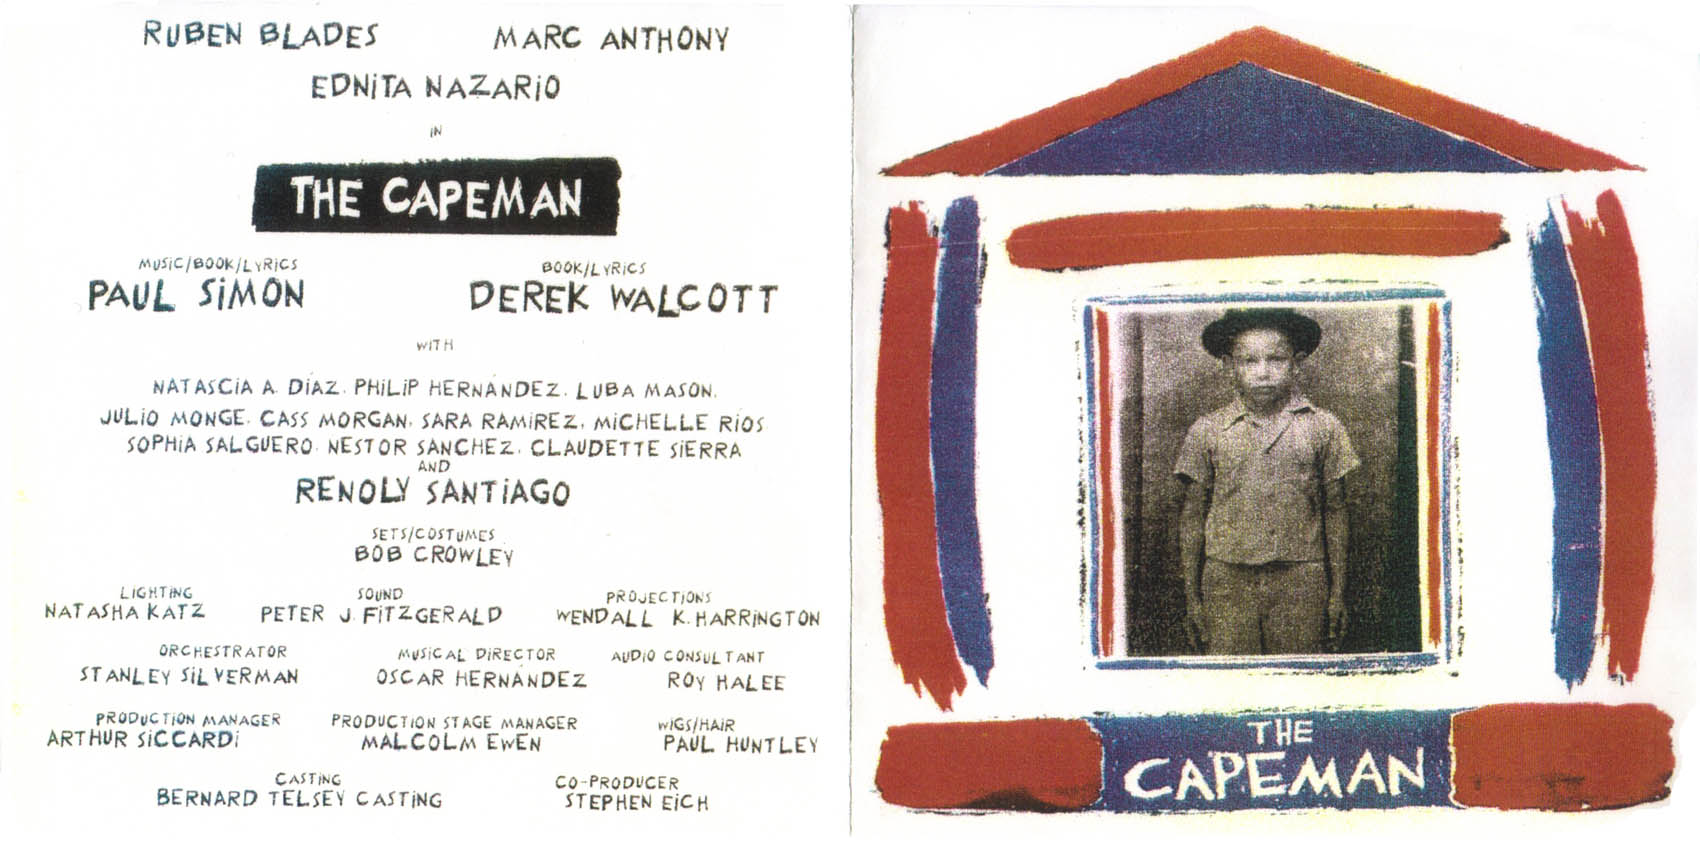 RUBEN BLADES MARC ANTHONY
EDNITA NAZARIO
IN
THE CAPEMAN
MUSIC/BOOK/LYRICS BOOK/LYRICS
PAUL SIMON DEREK WALCOTT
WITH
NATASCIA A. DÍAZ. PHILIP HERNÁNDEZ. LUBA MASON.
JULIO MONGE. CASS MORGAN. SARA RAMÍREZ. MICHELLE RÍOS
SOPHIA SALGUERO. NESTOR SÁNCHEZ. CLAUDETTE SIERRA
AND
RENOLY SANTIAGO
SETS/COSTUMES
BOB CROWLEY
LIGHTING SOUND PROJECTIONS
NATASHA KATZ PETER J. FITZGERALD WENDALL K. HARRINGTON
ORCHESTRATOR MUSICAL DIRECTOR AUDIO CONSULTANT
STANLEY SILVERMAN OSCAR HERNÁNDEZ ROY HALEE
PRODUCTION MANAGER PRODUCTION STAGE MANAGER WIGS/HAIR
ARTHUR SICCARDI MALCOLM EWEN PAUL HUNTLEY
CASTING CO-PRODUCER
BERNARD TELSEY CASTING STEPHEN EICH
THE
CAPEMAN